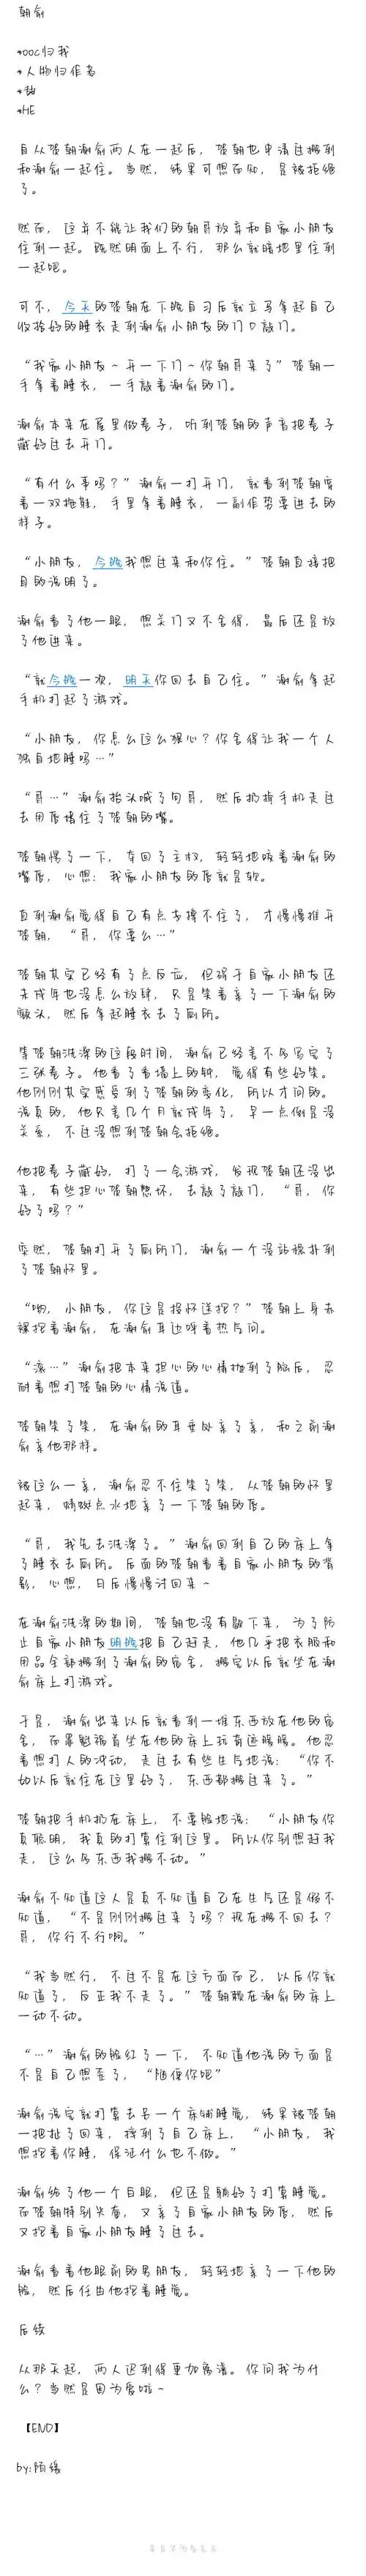 朝俞
*ooc归我
*人物归作者
*甜
*HE
自从贺朝谢俞两人在一起后，贺朝也申请过搬到
和谢俞一起住。当然，结果可想而知，是被拒绝
了。
然而，这并不能让我们的朝哥放弃和自家小朋友
住到一起。既然明面上不行，那么就暗地里住到
一起吧。
可不，今天的贺朝在下晚自习后就立马拿起自己
收拾好的睡衣走到谢俞小朋友的门口敲门。
“我家小朋友～开一下门～你朝哥来了”贺朝一
手拿着睡衣，一手敲着谢俞的门。
谢俞本来在屋里做卷子，听到贺朝的声音把卷子
藏好过去开门。
“有什么事吗？”谢俞一打开门，就看到贺朝穿
着一双拖鞋，手里拿着睡衣，一副作势要进去的
样子。
“小朋友，今晚我想过来和你住。”贺朝直接把
目的说明了。
谢俞看了他一眼，想关门又不舍得，最后还是放
了他进来。
“就今晚一次，明天你回去自己住。”谢俞拿起
手机打起了游戏。
“小朋友，你怎么这么狠心？你舍得让我一个人
独自地睡吗…”
“哥…”谢俞抬头喊了句哥，然后扔掉手机走过
去用唇堵住了贺朝的嘴。
贺朝愣了一下，夺回了主权，轻轻地咬着谢俞的
嘴唇，心想：我家小朋友的唇就是软。
直到谢俞觉得自己有点支撑不住了，才慢慢推开
贺朝，“哥，你要么…”
贺朝其实已经有了点反应，但碍于自家小朋友还
未成年也没怎么放肆，只是笑着亲了一下谢俞的
额头，然后拿起睡衣去了厕所。
等贺朝洗澡的这段时间，谢俞已经差不多写完了
三张卷子。他看了看墙上的钟，觉得有些好笑。
他刚刚其实感受到了贺朝的变化，所以才问的。
说真的，他只差几个月就成年了，早一点倒是没
关系，不过没想到贺朝会拒绝。
他把卷子藏好，打了一会游戏，发现贺朝还没出
来，有些担心贺朝憋坏，去敲了敲门，“哥，你
好了吗？”
突然，贺朝打开了厕所门，谢俞一个没站稳扑到
了贺朝怀里。
“哟，小朋友，你这是投怀送抱？”贺朝上身赤
裸抱着谢俞，在谢俞耳边呼着热气问。
“滚…”谢俞把本来担心的心情抛到了脑后，忍
耐着想打贺朝的心情说道。
贺朝笑了笑，在谢俞的耳垂处亲了亲，和之前谢
俞亲他那样。
被这么一亲，谢俞忍不住笑了笑，从贺朝的怀里
起来，蜻蜓点水地亲了一下贺朝的唇。
“哥，我先去洗澡了。”谢俞回到自己的床上拿
了睡衣去厕所。后面的贺朝看着自家小朋友的背
影，心想，日后慢慢讨回来～
在谢俞洗澡的期间，贺朝也没有闲下来，为了防
止自家小朋友明晚把自己赶走，他几乎把衣服和
用品全部搬到了谢俞的宿舍，搬完以后就坐在谢
俞床上打游戏。
于是，谢俞出来以后就看到一堆东西放在他的宿
舍，而罪魁祸首坐在他的床上玩有道暖暖。他忍
着想打人的冲动，走过去有些生气地说：“你不
如以后就住在这里好了，东西都搬过来了。”
贺朝把手机扔在床上，不要脸地说：“小朋友你
真聪明，我真的打算住到这里。所以你别想赶我
走，这么多东西我搬不动。”
谢俞不知道这人是真不知道自己在生气还是假不
知道，“不是刚刚搬过来了吗？现在搬不回去？
哥，你行不行啊。”
“我当然行，不过不是在这方面而已，以后你就
知道了，反正我不走了。”贺朝赖在谢俞的床上
一动不动。
“…”谢俞的脸红了一下，不知道他说的方面是
不是自己想歪了，“随便你吧”
谢俞说完就打算去另一个床铺睡觉，结果被贺朝
一把扯了回来，摔到了自己床上，“小朋友，我
想抱着你睡，保证什么也不做。”
谢俞给了他一个白眼，但还是躺好了打算睡觉。
而贺朝特别失奋，又亲了自家小朋友的唇，然后
又抱着自家小朋友睡了过去。
谢俞看着他眼前的男朋友，轻轻地亲了一下他的
脸，然后任由他抱着睡觉。
后续
从那天起，两人迟到得更加离谱。你问我为什
么？当然是因为爱啦～
【END】
by:陌缘